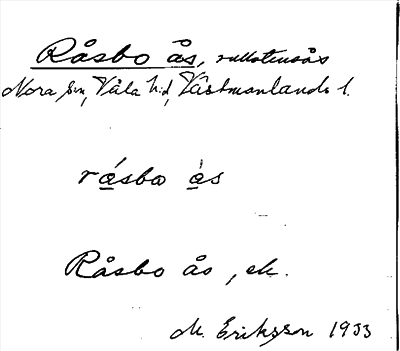 Råsbo ås, rullstensås
Nora sn, Våla hd, Västmanlands l.
råsbo ås
Råsbo ås, ek.
M. Eriksson 1933